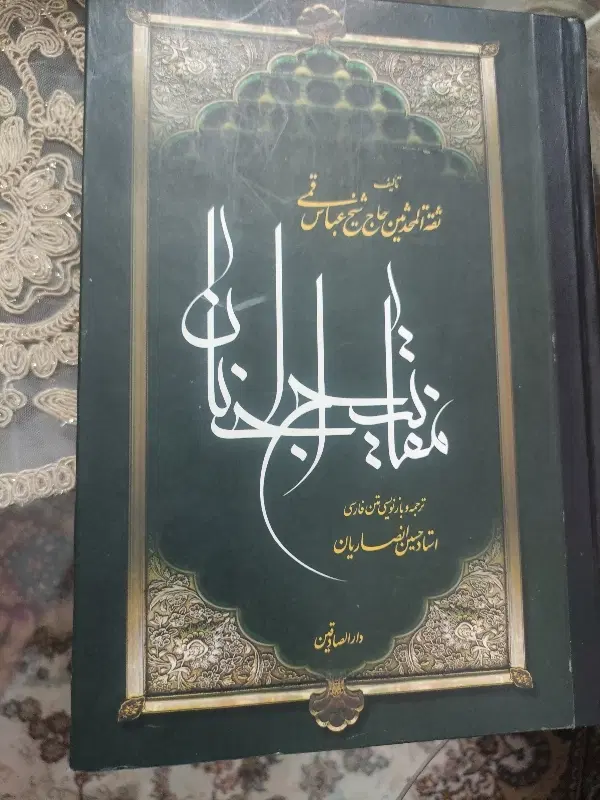 تألیف
ثقةالمحدثین حاج شیخ عباس قمی
مفاتیح الجنان
ترجمه و بازنویسی متن فارسی
استاد حسین انصاریان
دارالصادقین